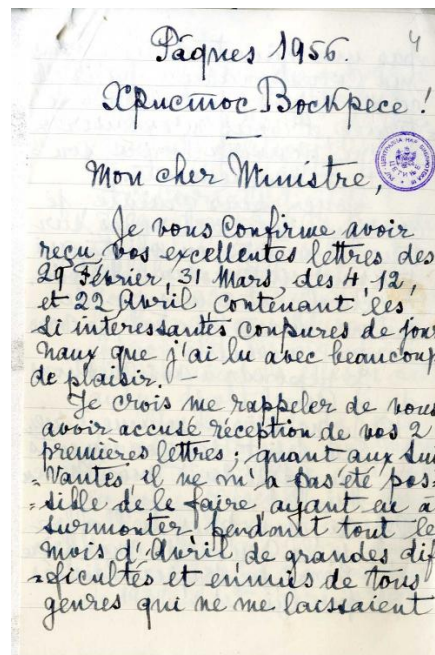 4
Pâques 1956.
Христос Воскресе!
Mon cher Ministre,
Je vous Confirme avoir
reçu vos excellentes lettres des
29 Février, 31 Mars, des 4, 12,
et 22 Avril contenant les
si interessantes coupures de jour
naux que j'ai lu avec beaucoup
de plaisir. –
Je crois me rappeler de vous
avoir accusé réception de vos 2
premières lettres; quant aux sui
-vantes, il ne m'a pas été pos-
-sible de le faire, ayant eu à
surmonter pendant tout le
mois d'Avril de grandes dif
-ficultés et ennuis de tous
genres qui ne me laissaient